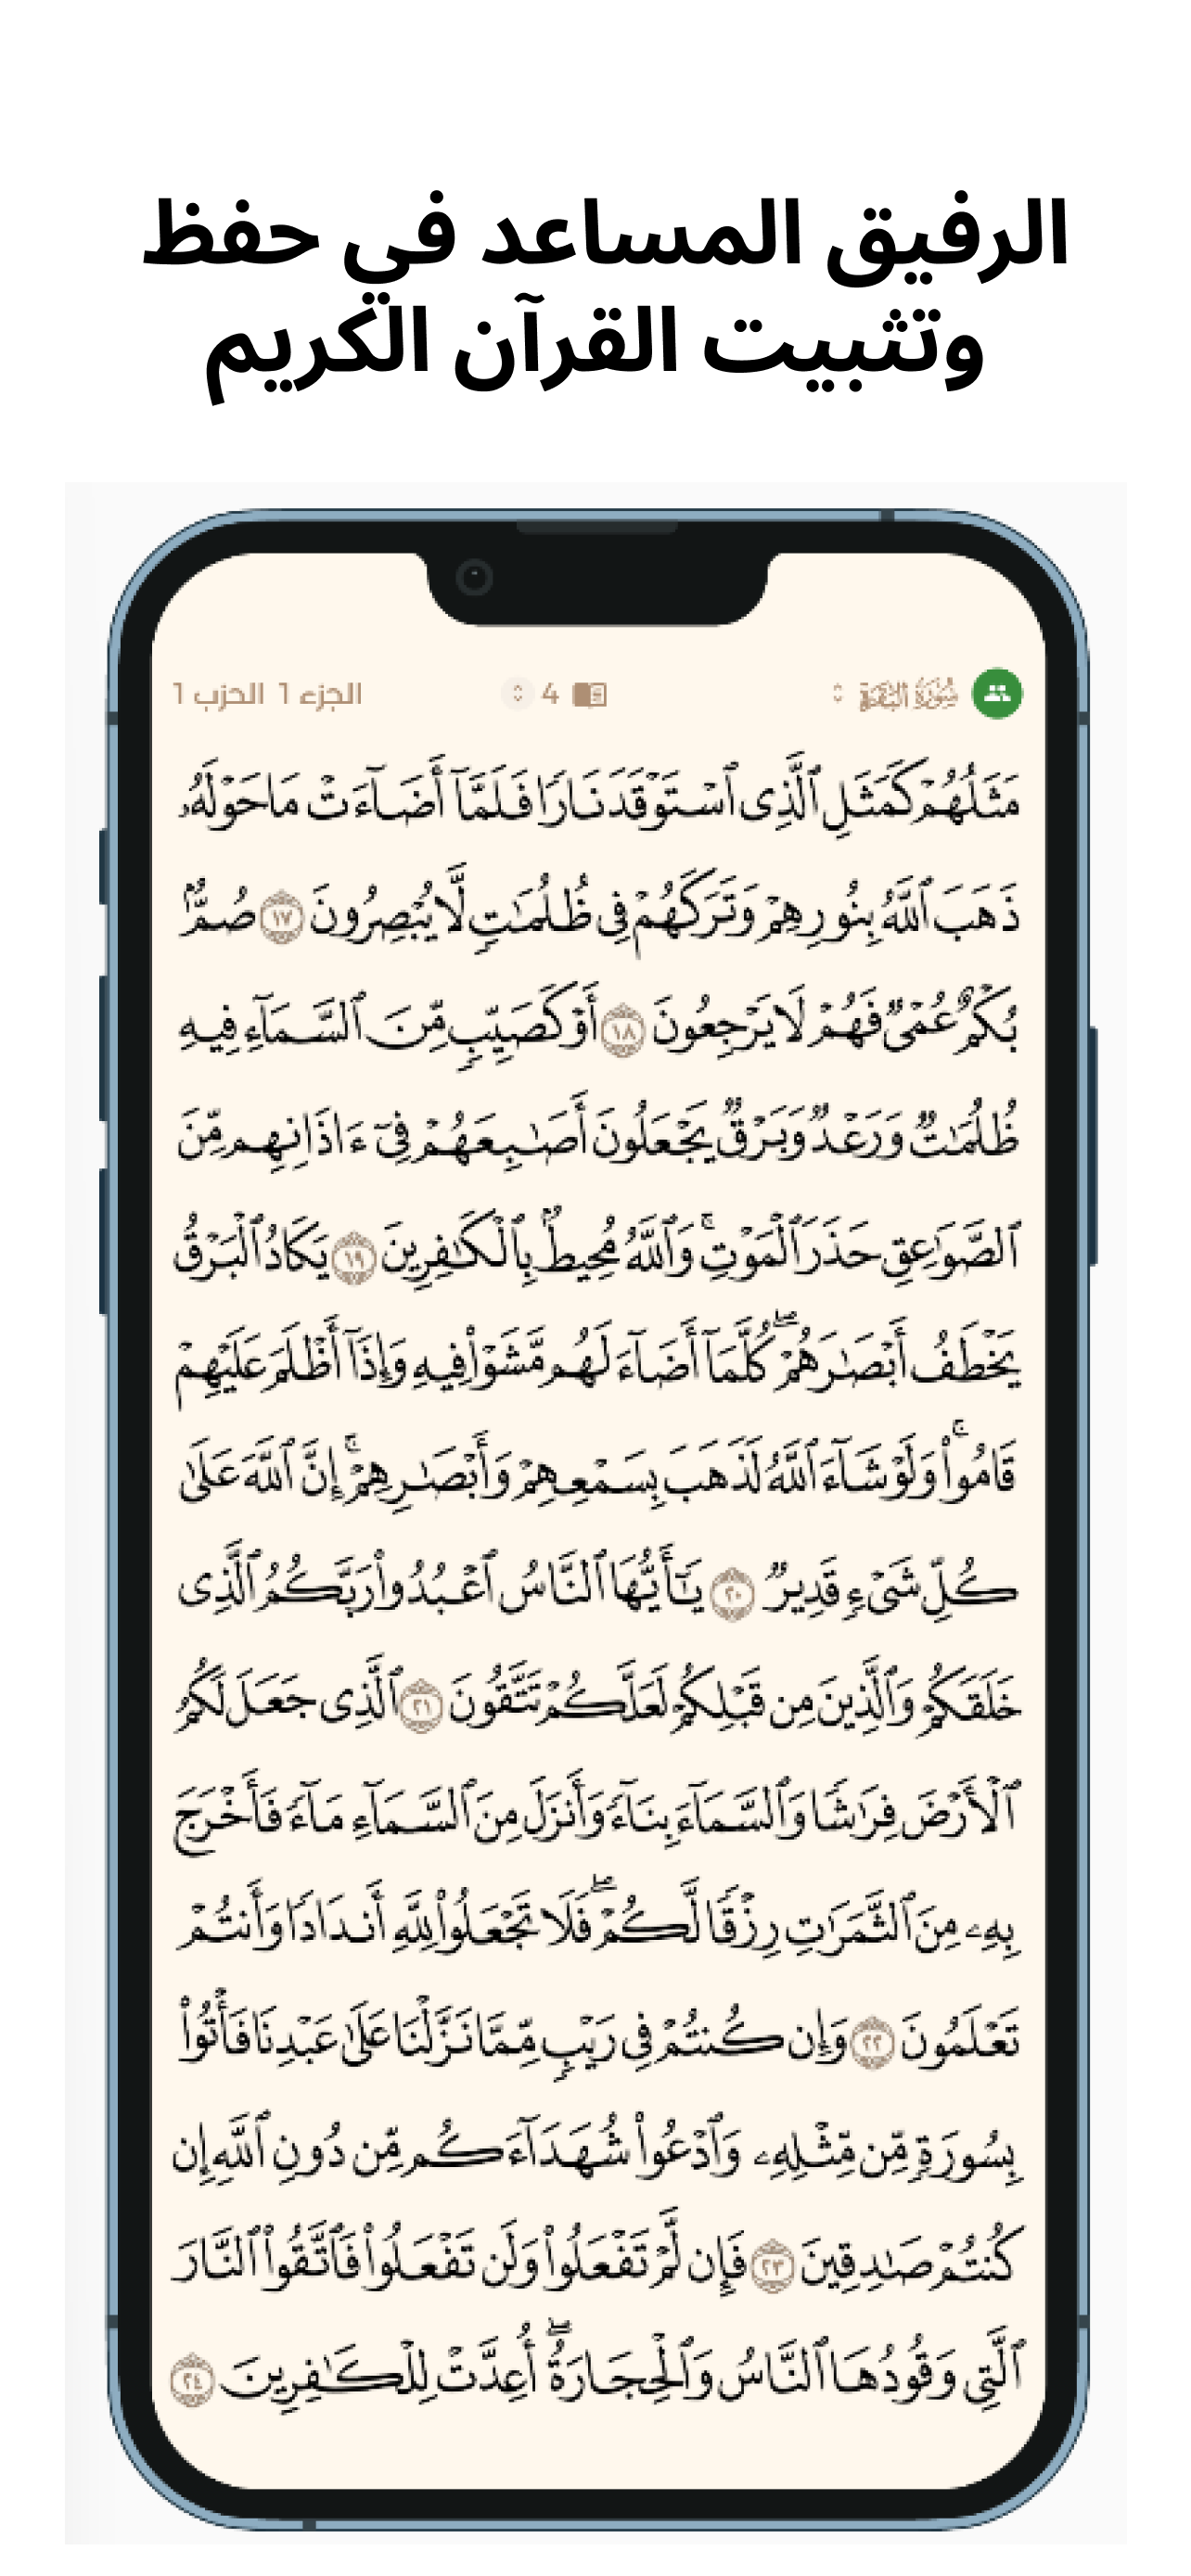 الرفيق المساعد في حفظ
وتثبيت القرآن الكريم
سُورَةُ البَقَرَةِ 4 الجزء 1 الحزب 1
مَثَلُهُمْ كَمَثَلِ ٱلَّذِى ٱسْتَوْقَدَ نَارًا فَلَمَّآ أَضَآءَتْ مَا حَوْلَهُۥ
ذَهَبَ ٱللَّهُ بِنُورِهِمْ وَتَرَكَهُمْ فِى ظُلُمَٰتٍ لَّا يُبْصِرُونَ ١٧ صُمٌّۢ
بُكْمٌ عُمْىٌ فَهُمْ لَا يَرْجِعُونَ ١٨ أَوْ كَصَيِّبٍ مِّنَ ٱلسَّمَآءِ فِيهِ
ظُلُمَٰتٌ وَرَعْدٌ وَبَرْقٌ يَجْعَلُونَ أَصَٰبِعَهُمْ فِىٓ ءَاذَانِهِم مِّنَ
ٱلصَّوَٰعِقِ حَذَرَ ٱلْمَوْتِ ۚ وَٱللَّهُ مُحِيطٌۢ بِٱلْكَٰفِرِينَ ١٩ يَكَادُ ٱلْبَرْقُ
يَخْطَفُ أَبْصَٰرَهُمْ ۖ كُلَّمَآ أَضَآءَ لَهُم مَّشَوْا۟ فِيهِ وَإِذَآ أَظْلَمَ عَلَيْهِمْ
قَامُوا۟ ۚ وَلَوْ شَآءَ ٱللَّهُ لَذَهَبَ بِسَمْعِهِمْ وَأَبْصَٰرِهِمْ ۚ إِنَّ ٱللَّهَ عَلَىٰ
كُلِّ شَىْءٍ قَدِيرٌ ٢٠ يَٰٓأَيُّهَا ٱلنَّاسُ ٱعْبُدُوا۟ رَبَّكُمُ ٱلَّذِى
خَلَقَكُمْ وَٱلَّذِينَ مِن قَبْلِكُمْ لَعَلَّكُمْ تَتَّقُونَ ٢١ ٱلَّذِى جَعَلَ لَكُمُ
ٱلْأَرْضَ فِرَٰشًا وَٱلسَّمَآءَ بِنَآءً وَأَنزَلَ مِنَ ٱلسَّمَآءِ مَآءً فَأَخْرَجَ
بِهِۦ مِنَ ٱلثَّمَرَٰتِ رِزْقًا لَّكُمْ ۖ فَلَا تَجْعَلُوا۟ لِلَّهِ أَندَادًا وَأَنتُمْ
تَعْلَمُونَ ٢٢ وَإِن كُنتُمْ فِى رَيْبٍ مِّمَّا نَزَّلْنَا عَلَىٰ عَبْدِنَا فَأْتُوا۟
بِسُورَةٍ مِّن مِّثْلِهِۦ وَٱدْعُوا۟ شُهَدَآءَكُم مِّن دُونِ ٱللَّهِ إِن
كُنتُمْ صَٰدِقِينَ ٢٣ فَإِن لَّمْ تَفْعَلُوا۟ وَلَن تَفْعَلُوا۟ فَٱتَّقُوا۟ ٱلنَّارَ
ٱلَّتِى وَقُودُهَا ٱلنَّاسُ وَٱلْحِجَارَةُ ۖ أُعِدَّتْ لِلْكَٰفِرِينَ ٢٤